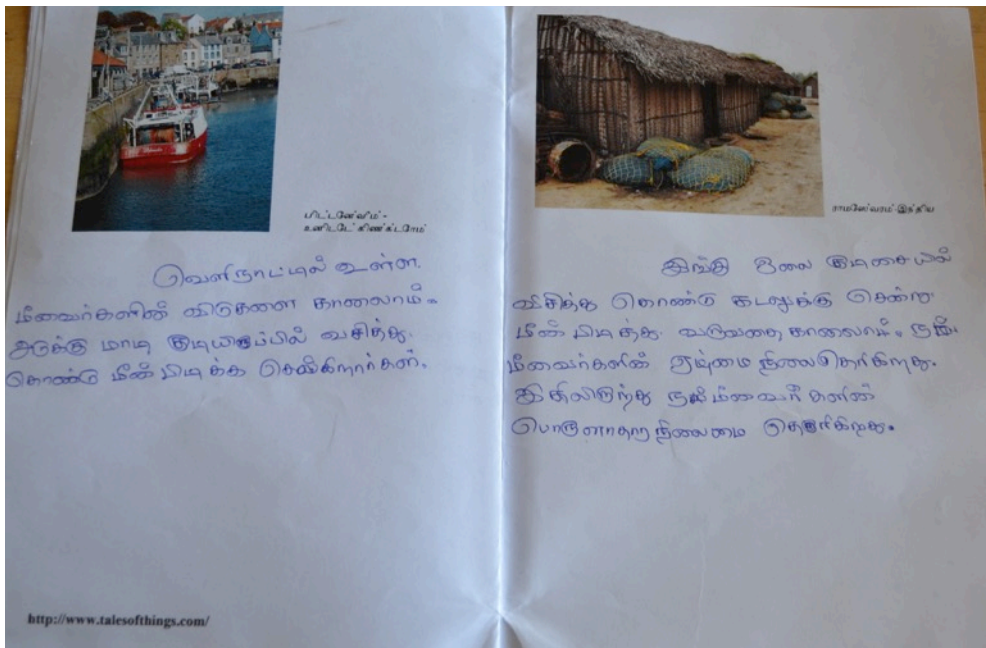 பிட்டன்வீம்-
உனிடடேட் கிண்க்டரோம்
வெளிநாட்டில் உள்ள.
மீனவர்களின் விடுகளை காணலாம்.
அடுக்கு மாடி குடியிருப்பில் வசித்து
கொண்டு மீன் பிடிக்க செல்கிறார்கள்.
http://www.talesofthings.com/
ராமஸேவரம்-இந்திய
இங்கு ஓலை குடிசையில்
வசித்து கொண்டு கடலுக்கு சென்று
மீன் பிடித்து வருவதை காணலாம். நம்
மீனவர்களின் ஏழ்மை நிலைதெரிகிறது.
இதிலிருந்து நம் மீனவர்களின்
பொருளாதார நிலைமை தெரிகிறது.